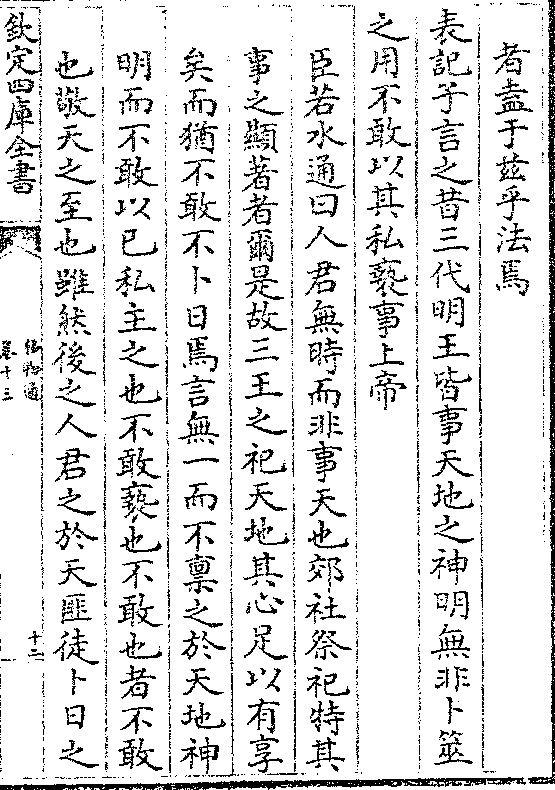 者盍于茲乎法焉
表記子言之昔三代明王皆事天地之神明無非卜筮
之用不敢以其私褻事上帝
臣若水通曰人君無時而非事天也郊社祭祀特其
事之顯著者爾是故三王之祀天地其心足以有享
矣而猶不敢不卜日焉言無一而不稟之於天地神
明而不敢以已私主之也不敢褻也不敢也者不敢
也敬天之至也雖然後之人君之於天匪徒卜日之
欽定四庫全書
格物通
卷十三
十二